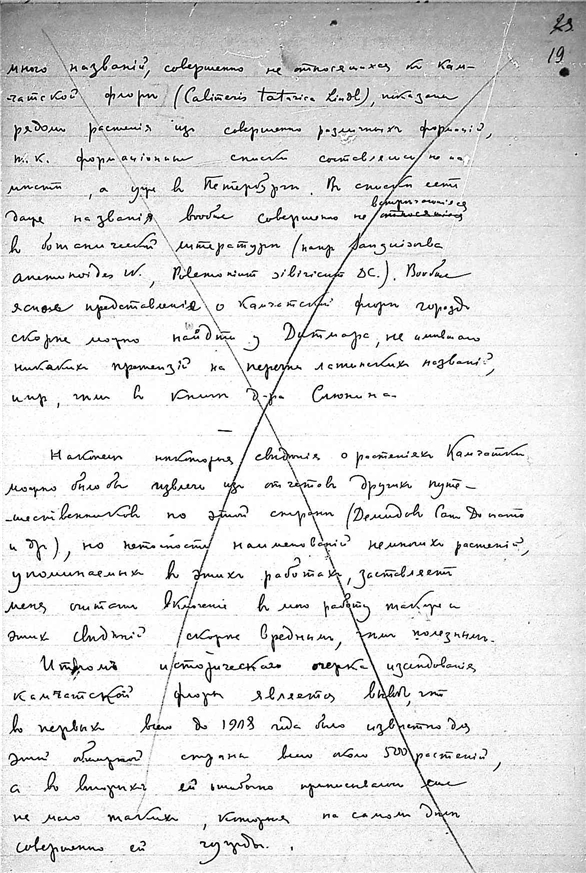 23
19
много названій, совершенно не относящихся къ Кам-
чатской флорѣ (Calimeris tatarica Lindl), показаны
рядомъ растенія изъ совершенно различныхъ формацій,
т.к. формаціонные списки составлялись не на
мѣстѣ, а уже въ Петербургѣ. Въ спискѣ есть
даже названія вообще совершенно не встрѣчающіяся
въ ботанической литературѣ (напр Sanguisorba
anemonoides W., Polemonium sibiricum DC.). Вообще
ясное представленіе о Камчатской флорѣ гораздо
скорѣе можно найдти у Дитмара, не имѣвшаго
никакихъ претензій на перечни латинскихъ названій,
чѣмъ въ книгѣ д-ра Слюнина.
Наконецъ нѣкоторыя свѣдѣнія о растеніяхъ Камчатки
можно было бы извлечь изъ отчетовъ другихъ путе-
шественниковъ по этой странѣ (Демидовъ Санъ Донато
и др), но неточность наименованій немногихъ растеній,
упоминаемыхъ въ этихъ работахъ, заставляетъ
меня считать включеніе въ мою работу также и
этихъ свѣдѣній скорѣе вреднымъ, чѣмъ полезнымъ.
Итогомъ историческаго очерка изслѣдованія
камчатской флоры является выводъ, что
во первыхъ всего до 1908 года было извѣстно для
этой обширной страны всего около 500 растеній,
а во вторыхъ ей ошибочно приписывали еще
не мало такихъ, которыя на самомъ дѣлѣ
совершенно ей чужды.